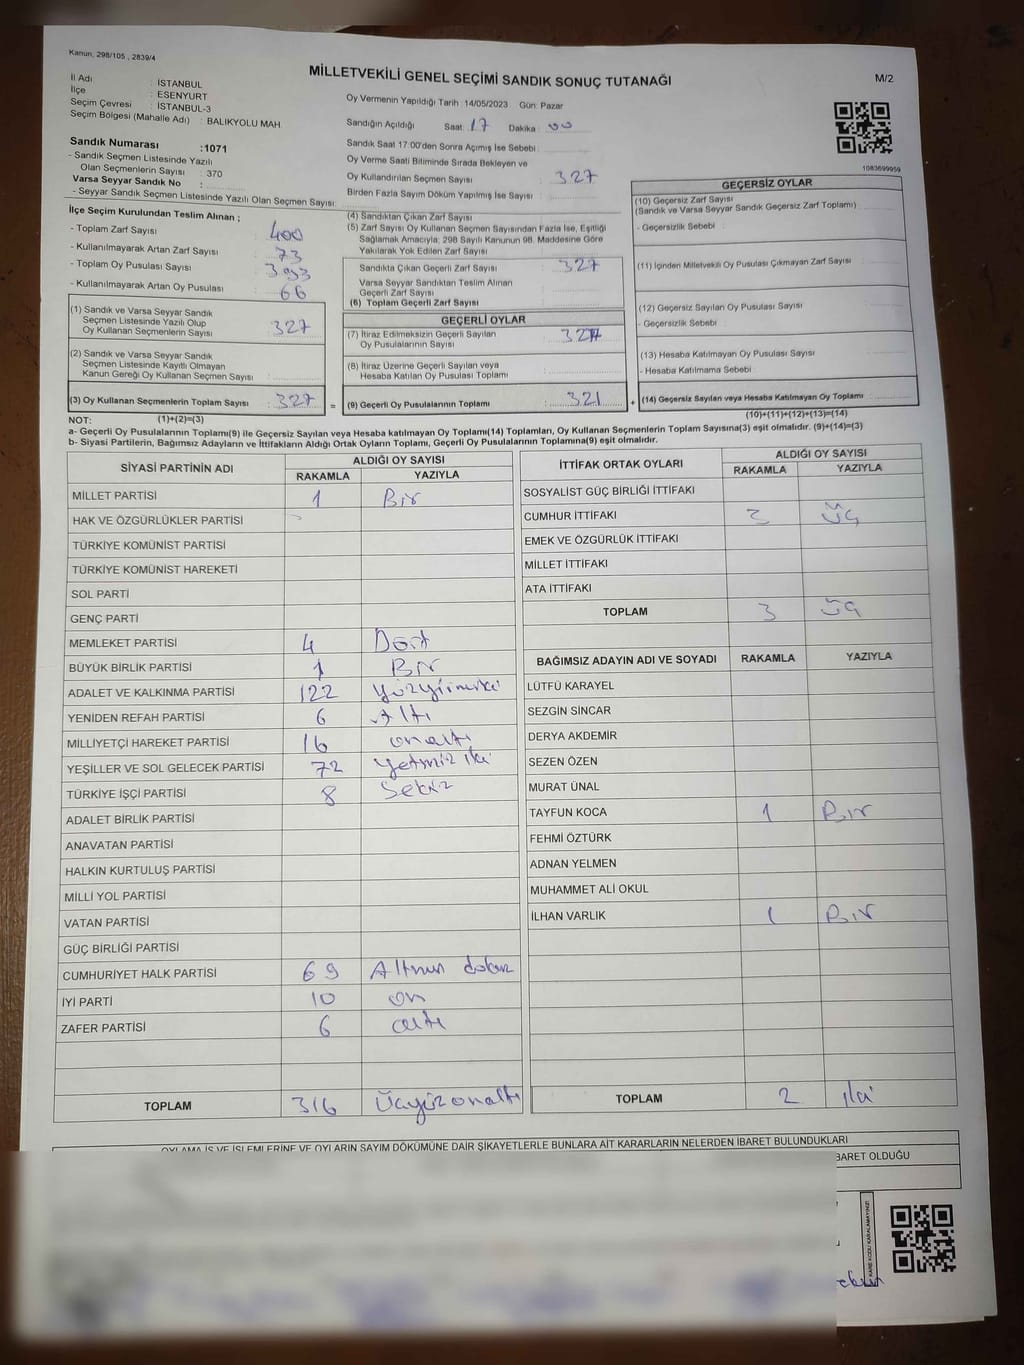 Kanun, 298/105 , 2839/4
MİLLETVEKİLİ GENEL SEÇİMİ SANDIK SONUÇ TUTANAĞI
M/2
İl Adı : İSTANBUL
İlçe : ESENYURT
Seçim Çevresi : İSTANBUL-3
Seçim Bölgesi (Mahalle Adı) : BALIKYOLU MAH.
Sandık Numarası :1071
- Sandık Seçmen Listesinde Yazılı
Olan Seçmenlerin Sayısı : 370
Varsa Seyyar Sandık No :
- Seyyar Sandık Seçmen Listesinde Yazılı Olan Seçmen Sayısı:
Oy Vermenin Yapıldığı Tarih :14/05/2023 Gün: Pazar
Sandığın Açıldığı Saat :17 Dakika :00
Sandık Saat 17:00'den Sonra Açımış İse Sebebi :
Oy Verme Saati Bitiminde Sırada Bekleyen ve
Oy Kullandırılan Seçmen Sayısı : 327
Birden Fazla Sayım Döküm Yapılmış İse Sayısı :
1083699959
İlçe Seçim Kurulundan Teslim Alınan ;
- Toplam Zarf Sayısı : 400
- Kullanılmayarak Artan Zarf Sayısı : 73
- Toplam Oy Pusulası Sayısı : 393
- Kullanılmayarak Artan Oy Pusulası : 66
(1) Sandık ve Varsa Seyyar Sandık
Seçmen Listesinde Yazılı Olup
Oy Kullanan Seçmenlerin Sayısı : 327
(2) Sandık ve Varsa Seyyar Sandık
Seçmen Listesinde Kayıtlı Olmayan
Kanun Gereği Oy Kullanan Seçmen Sayısı :
(3) Oy Kullanan Seçmenlerin Toplam Sayısı : 327
(4) Sandıktan Çıkan Zarf Sayısı :
(5) Zarf Sayısı Oy Kullanan Seçmen Sayısından Fazla İse, Eşitliği
Sağlamak Amacıyla, 298 Sayılı Kanunun 98. Maddesine Göre
Yakılarak Yok Edilen Zarf Sayısı :
Sandıkta Çıkan Geçerli Zarf Sayısı : 327
Varsa Seyyar Sandıktan Teslim Alınan
Geçerli Zarf Sayısı :
(6) Toplam Geçerli Zarf Sayısı :
GEÇERLİ OYLAR
(7) İtiraz Edilmeksizin Geçerli Sayılan
Oy Pusulalarının Sayısı :
(8) İtiraz Üzerine Geçerli Sayılan veya
Hesaba Katılan Oy Pusulası Toplamı :
= (9) Geçerli Oy Pusulalarının Toplamı : 321
GEÇERSİZ OYLAR
(10) Geçersiz Zarf Sayısı
(Sandık ve Varsa Seyyar Sandık Geçersiz Zarf Toplamı) :
- Geçersizlik Sebebi :
(11) İçinden Milletvekili Oy Pusulası Çıkmayan Zarf Sayısı :
(12) Geçersiz Sayılan Oy Pusulası Sayısı :
- Geçersizlik Sebebi :
(13) Hesaba Katılmayan Oy Pusulası Sayısı :
- Hesaba Katılmama Sebebi :
+ (14) Geçersiz Sayılan veya Hesaba Katılmayan Oy Toplamı :
NOT: (1)+(2)=(3)
(10)+(11)+(12)+(13)=(14)
a- Geçerli Oy Pusulalarının Toplamı(9) ile Geçersiz Sayılan veya Hesaba katılmayan Oy Toplamı(14) Toplamları, Oy Kullanan Seçmenlerin Toplam Sayısına(3) eşit olmalıdır. (9)+(14)=(3)
b- Siyasi Partilerin, Bağımsız Adayların ve İttifakların Aldığı Ortak Oyların Toplamı, Geçerli Oy Pusulalarının Toplamına(9) eşit olmalıdır.
SİYASİ PARTİNİN ADI ALDIĞI OY SAYISI
RAKAMLA YAZIYLA
MİLLET PARTİSİ 1 Bir
HAK VE ÖZGÜRLÜKLER PARTİSİ
TÜRKİYE KOMÜNİST PARTİSİ
TÜRKİYE KOMÜNİST HAREKETİ
SOL PARTİ
GENÇ PARTİ
MEMLEKET PARTİSİ 4 Dört
BÜYÜK BİRLİK PARTİSİ 1 Bir
ADALET VE KALKINMA PARTİSİ 122 yüzyirmiiki
YENİDEN REFAH PARTİSİ 6 Altı
MİLLİYETÇİ HAREKET PARTİSİ 16 onaltı
YEŞİLLER VE SOL GELECEK PARTİSİ 72 yetmiş iki
TÜRKİYE İŞÇİ PARTİSİ 8 Sekiz
ADALET BİRLİK PARTİSİ
ANAVATAN PARTİSİ
HALKIN KURTULUŞ PARTİSİ
MİLLİ YOL PARTİSİ
VATAN PARTİSİ
GÜÇ BİRLİĞİ PARTİSİ
CUMHURİYET HALK PARTİSİ 69 Altmış dokuz
İYİ PARTİ 10 on
ZAFER PARTİSİ 6 altı
TOPLAM 316 Üçyüzonaltı
İTTİFAK ORTAK OYLARI ALDIĞI OY SAYISI
RAKAMLA YAZIYLA
SOSYALİST GÜÇ BİRLİĞİ İTTİFAKI
CUMHUR İTTİFAKI 3 üç
EMEK VE ÖZGÜRLÜK İTTİFAKI
MİLLET İTTİFAKI
ATA İTTİFAKI
TOPLAM 3 üç
BAĞIMSIZ ADAYIN ADI VE SOYADI RAKAMLA YAZIYLA
LÜTFÜ KARAYEL
SEZGİN SİNCAR
DERYA AKDEMİR
SEZEN ÖZEN
MURAT ÜNAL
TAYFUN KOCA 1 Bir
FEHMİ ÖZTÜRK
ADNAN YELMEN
MUHAMMET ALİ OKUL
İLHAN VARLIK 1 Bir
TOPLAM 2 iki
OYLAMA İŞ VE İŞLEMLERİNE VE OYLARIN SAYIM DÖKÜMÜNE DAİR ŞİKAYETLERLE BUNLARA AİT KARARLARIN NELERDEN İBARET BULUNDUKLARI
BARET OLDUĞU